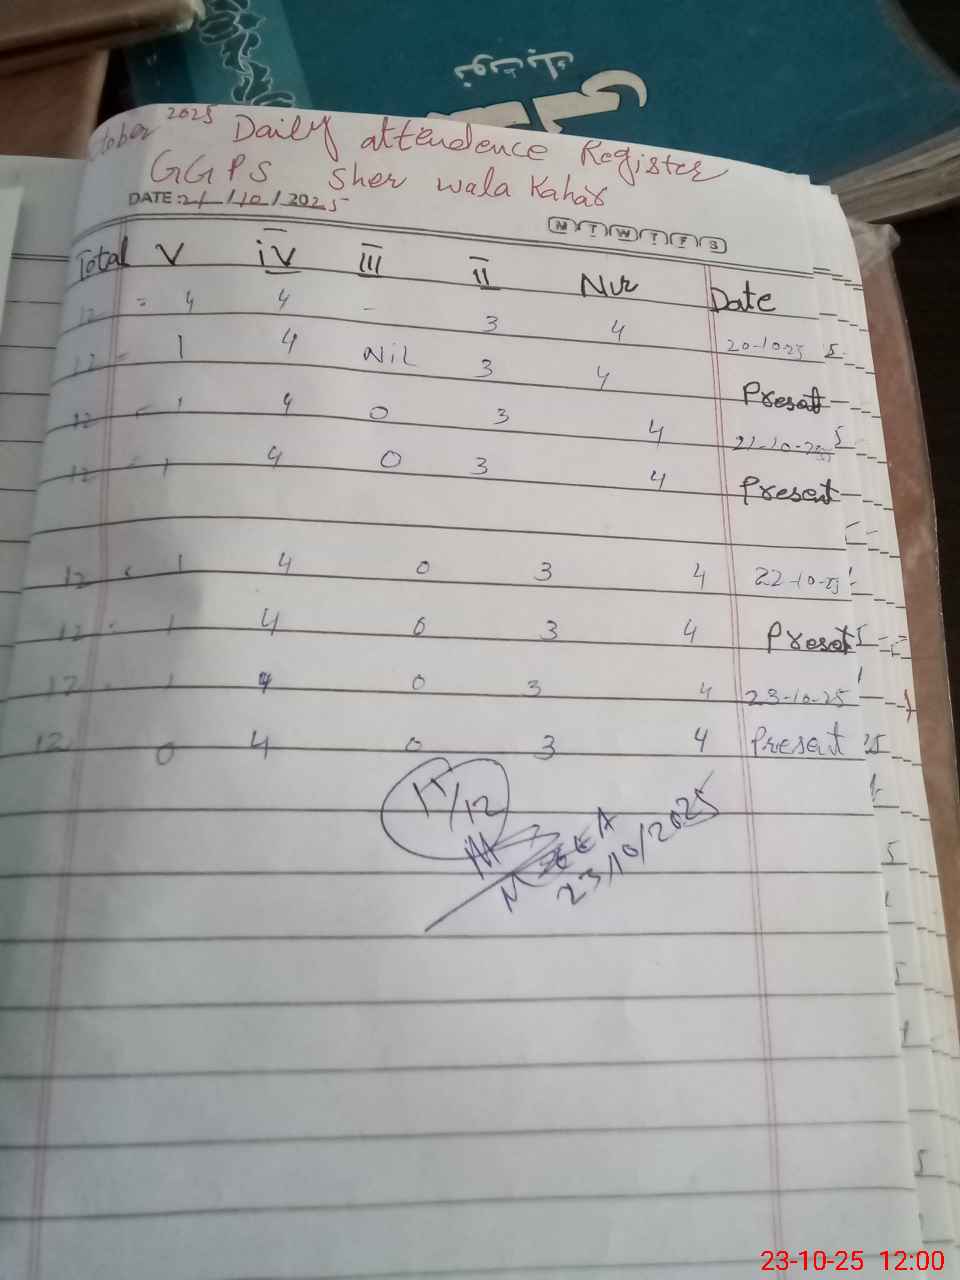 نوٹ بک
October 2025 Daily attendence Register
GGPS Sher wala Kahar
DATE: 21/10/2025
M T W T F S
Total V IV III II Nur Date
12 = 4 4 - 3 4 20-10-25
12 - 1 4 Nil 3 4 Present
12 - 1 4 0 3 4 21-10-25
12 - 1 4 0 3 4 Present
12 1 4 0 3 4 22-10-25
12 1 4 0 3 4 Present
12 1 4 0 3 4 23-10-25
12 0 4 0 3 4 Present
11/12
MEEA
23/10/2025
23-10-25 12:00